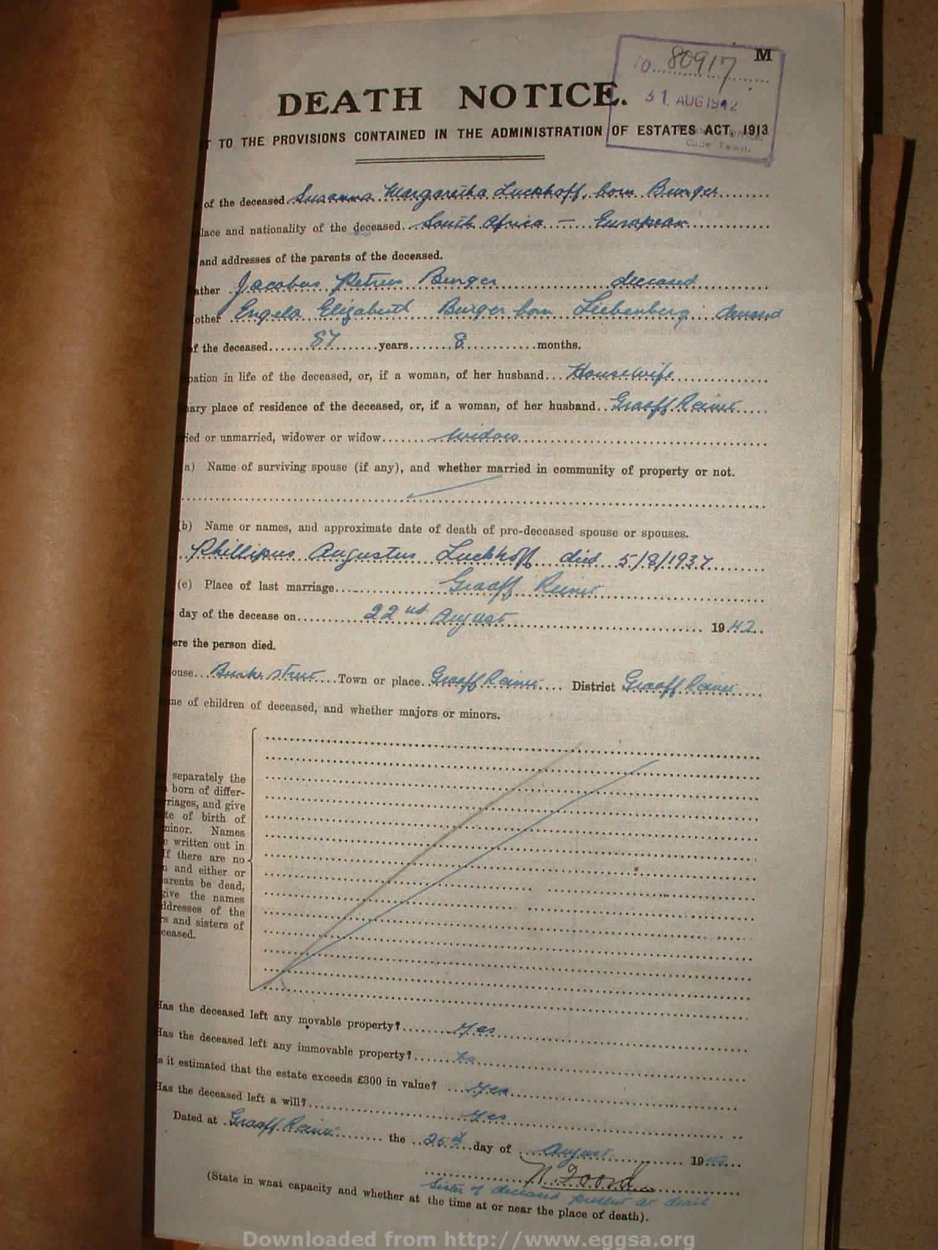 M
No. 80917
31 AUG 1942
Cape Town.
DEATH NOTICE.
T TO THE PROVISIONS CONTAINED IN THE ADMINISTRATION OF ESTATES ACT, 1913
of the deceased Susanna Margaretha Luckhoff, born Burger
lace and nationality of the deceased. South Africa — European
and addresses of the parents of the deceased.
ather Jacobus Petrus Burger deceased
other Engela Elizabeth Burger born Liebenberg deceased
of the deceased 87 years 8 months.
pation in life of the deceased, or, if a woman, of her husband... Housewife
nary place of residence of the deceased, or, if a woman, of her husband.. Graaff Reinet
ied or unmarried, widower or widow widow
a) Name of surviving spouse (if any), and whether married in community of property or not.
b) Name or names, and approximate date of death of pre-deceased spouse or spouses.
Phillipus Augustus Luckhoff died 5/8/1937
(c) Place of last marriage Graaff Reinet
day of the decease on 22nd August 1942
ere the person died.
ouse.. Bourke Street Town or place. Graaff Reinet District Graaff Reinet
me of children of deceased, and whether majors or minors.
separately the
born of differ-
riages, and give
te of birth of
minor. Names
e written out in
If there are no
n and either or
arents be dead,
give the names
ddresses of the
rs and sisters of
ceased.
Has the deceased left any movable property? yes
Has the deceased left any immovable property? no
s it estimated that the estate exceeds £300 in value? yes
Has the deceased left a will? yes
Dated at Graaff Reinet the 26th day of August 1942
Sister of deceased present at death
(State in what capacity and whether at the time at or near the place of death).
Downloaded from http://www.eggsa.org